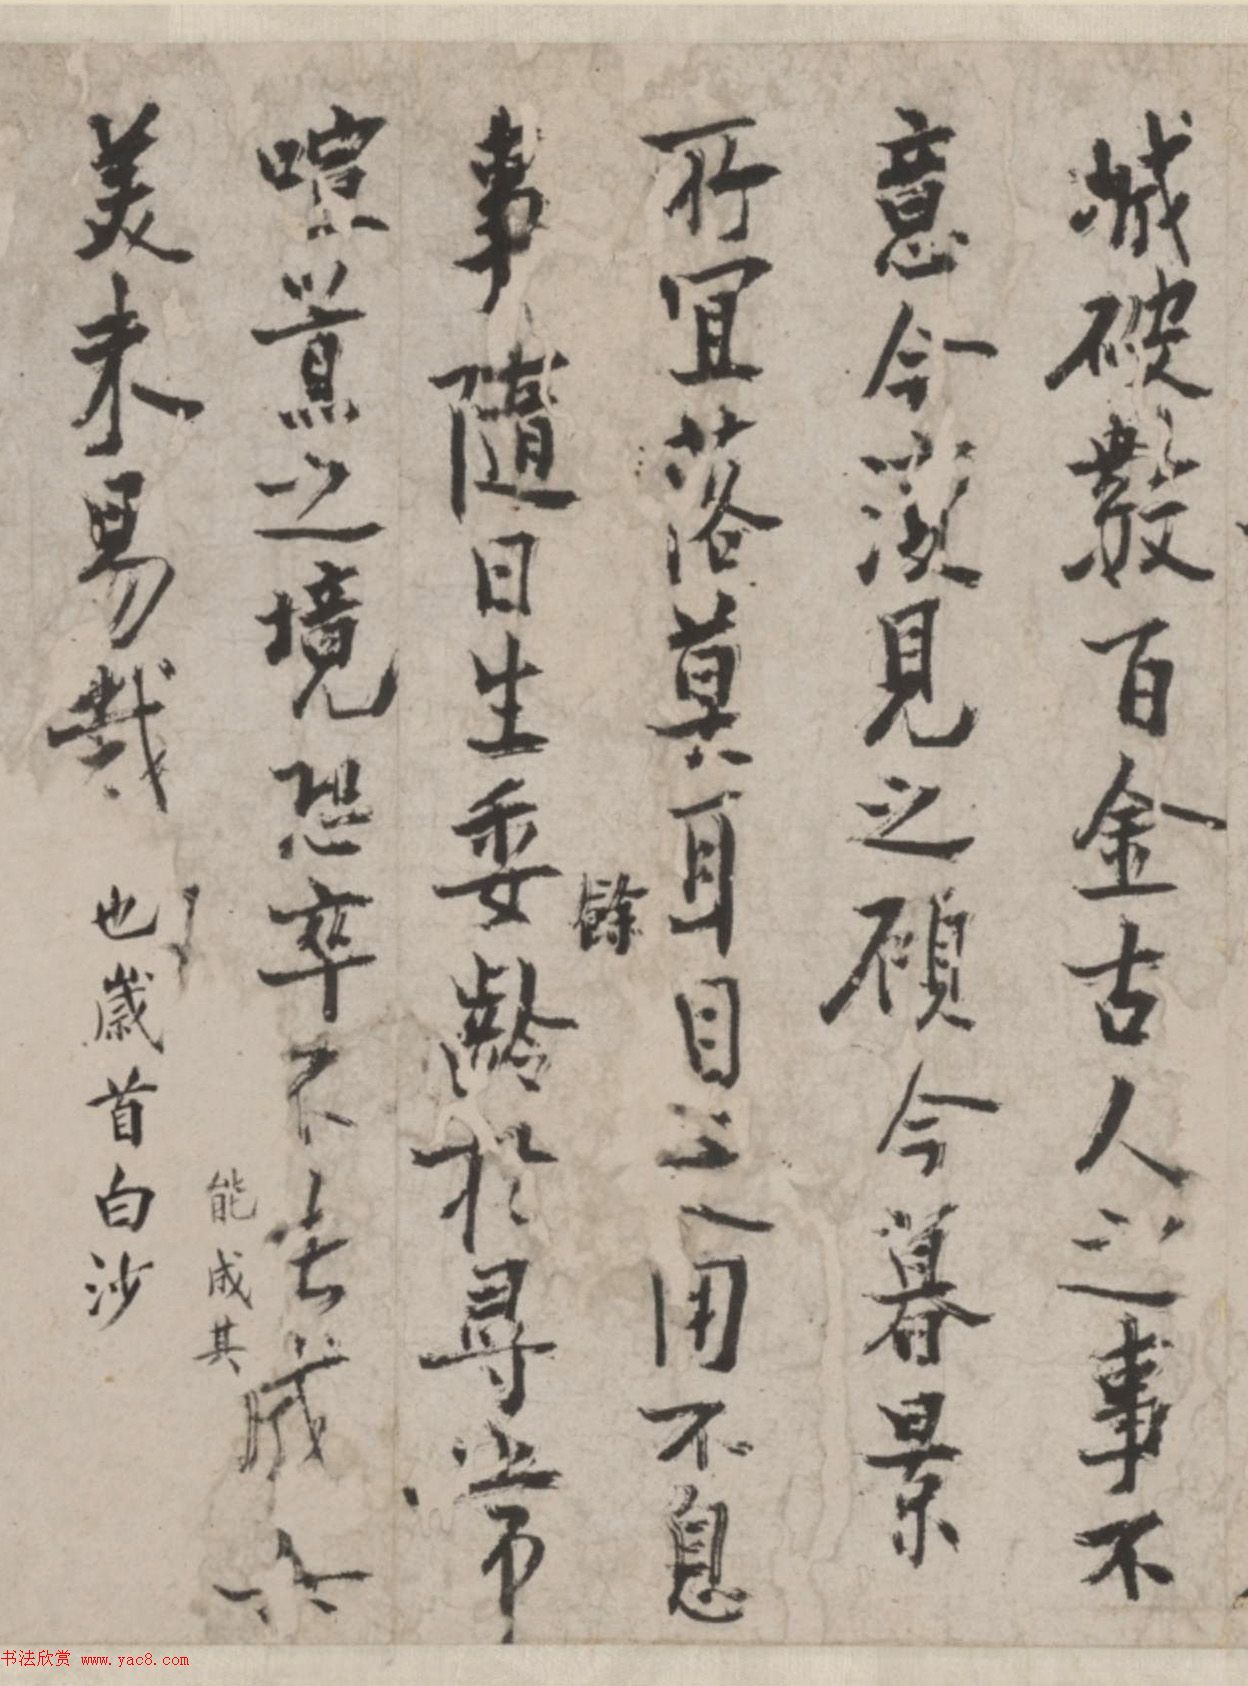 城破散百金古人之事不
意今復見之顧今暮景
所宜落莫耳目之用不息
餘
事隨日生委齡於尋常
喧囂之境恐卒不能成其
能成其
美未易哉
也歲首白沙
书法欣赏 www.yac8.com